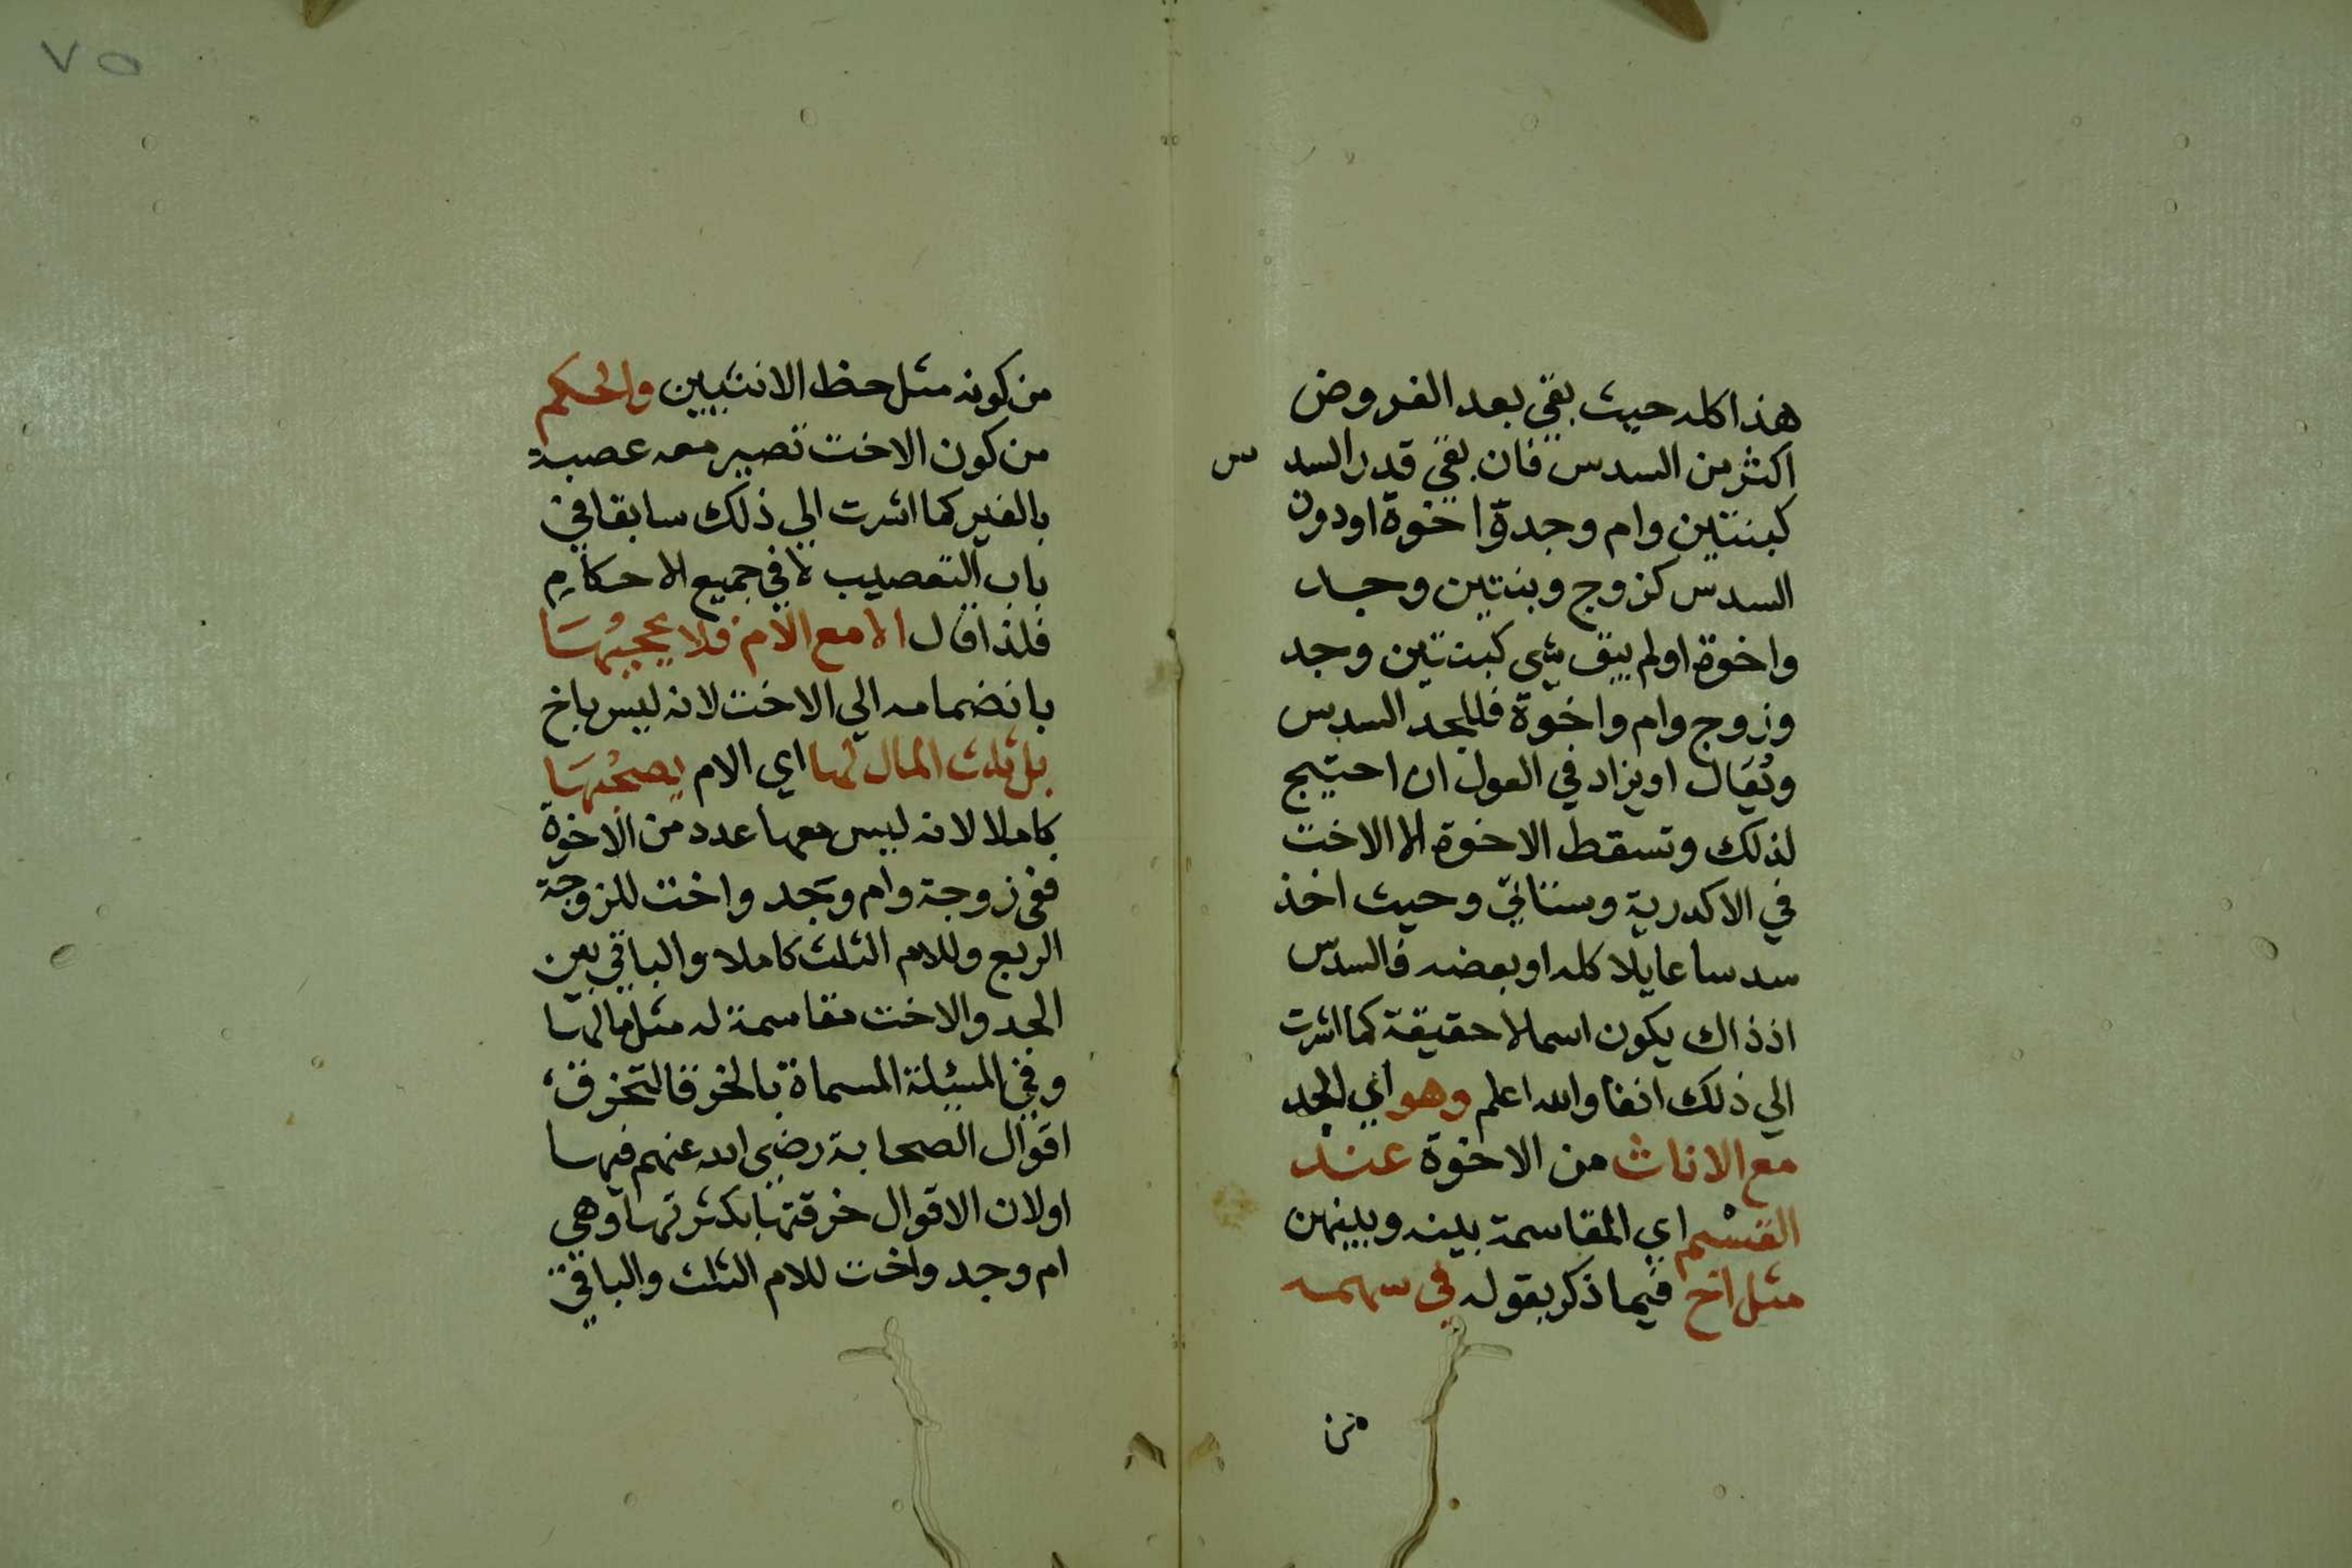 هذا كله حيث بقي بعد الفروض
اكثر من السدس فان بقي قدر السدس
كبنتين وام وجدة واخوة اودون
السدس كزوج وبنتين وجد
واخوة اولم يبق شي كبنتين وجد
وزوج وام واخوة فللجد السدس
ويُعَال اويزاد في العول ان احتيج
لذلك وتسقط الاخوة الا الاخت
في الاكدرية وستاتي وحيث اخذ
سدسا عايلا كله اوبعضه فالسدس
اذ ذاك يكون اسما لا حقيقة كما اشرت
الي ذلك انفا والله اعلم وهو اي الجد
مع الاناث من الاخوة عند
القسْم اي المقاسمة بينه وبينهن
مثل اخ فيما ذكر بقوله في سهمه
من
٧٥
من كونه مثل حظ الانثيين والحكم
من كون الاخت تصير معه عصبة
بالغير كما اشرت الي ذلك سابقا في
باب التعصيب لا في جميع الاحكام
فلذا قال الا مع الام فلا يحجبُهَا
بانضمامه الي الاخت لانه ليس باخ
بل ثلث المال لها اي الام يصحبُهَا
كاملا لانه ليس معها عدد من الاخوة
ففي زوجة وام وجد واخت للزوجة
الربع وللام الثلث كاملا والباقي بين
الجد والاخت مقاسمة له مثل مالها
وفي المسئلة المسماة بالخرقا لتخرق
اقوال الصحابة رضي الله عنهم فيها
اولان الاقوال خرقتها بكثرتها وهي
ام وجد واخت للام الثلث والباقي